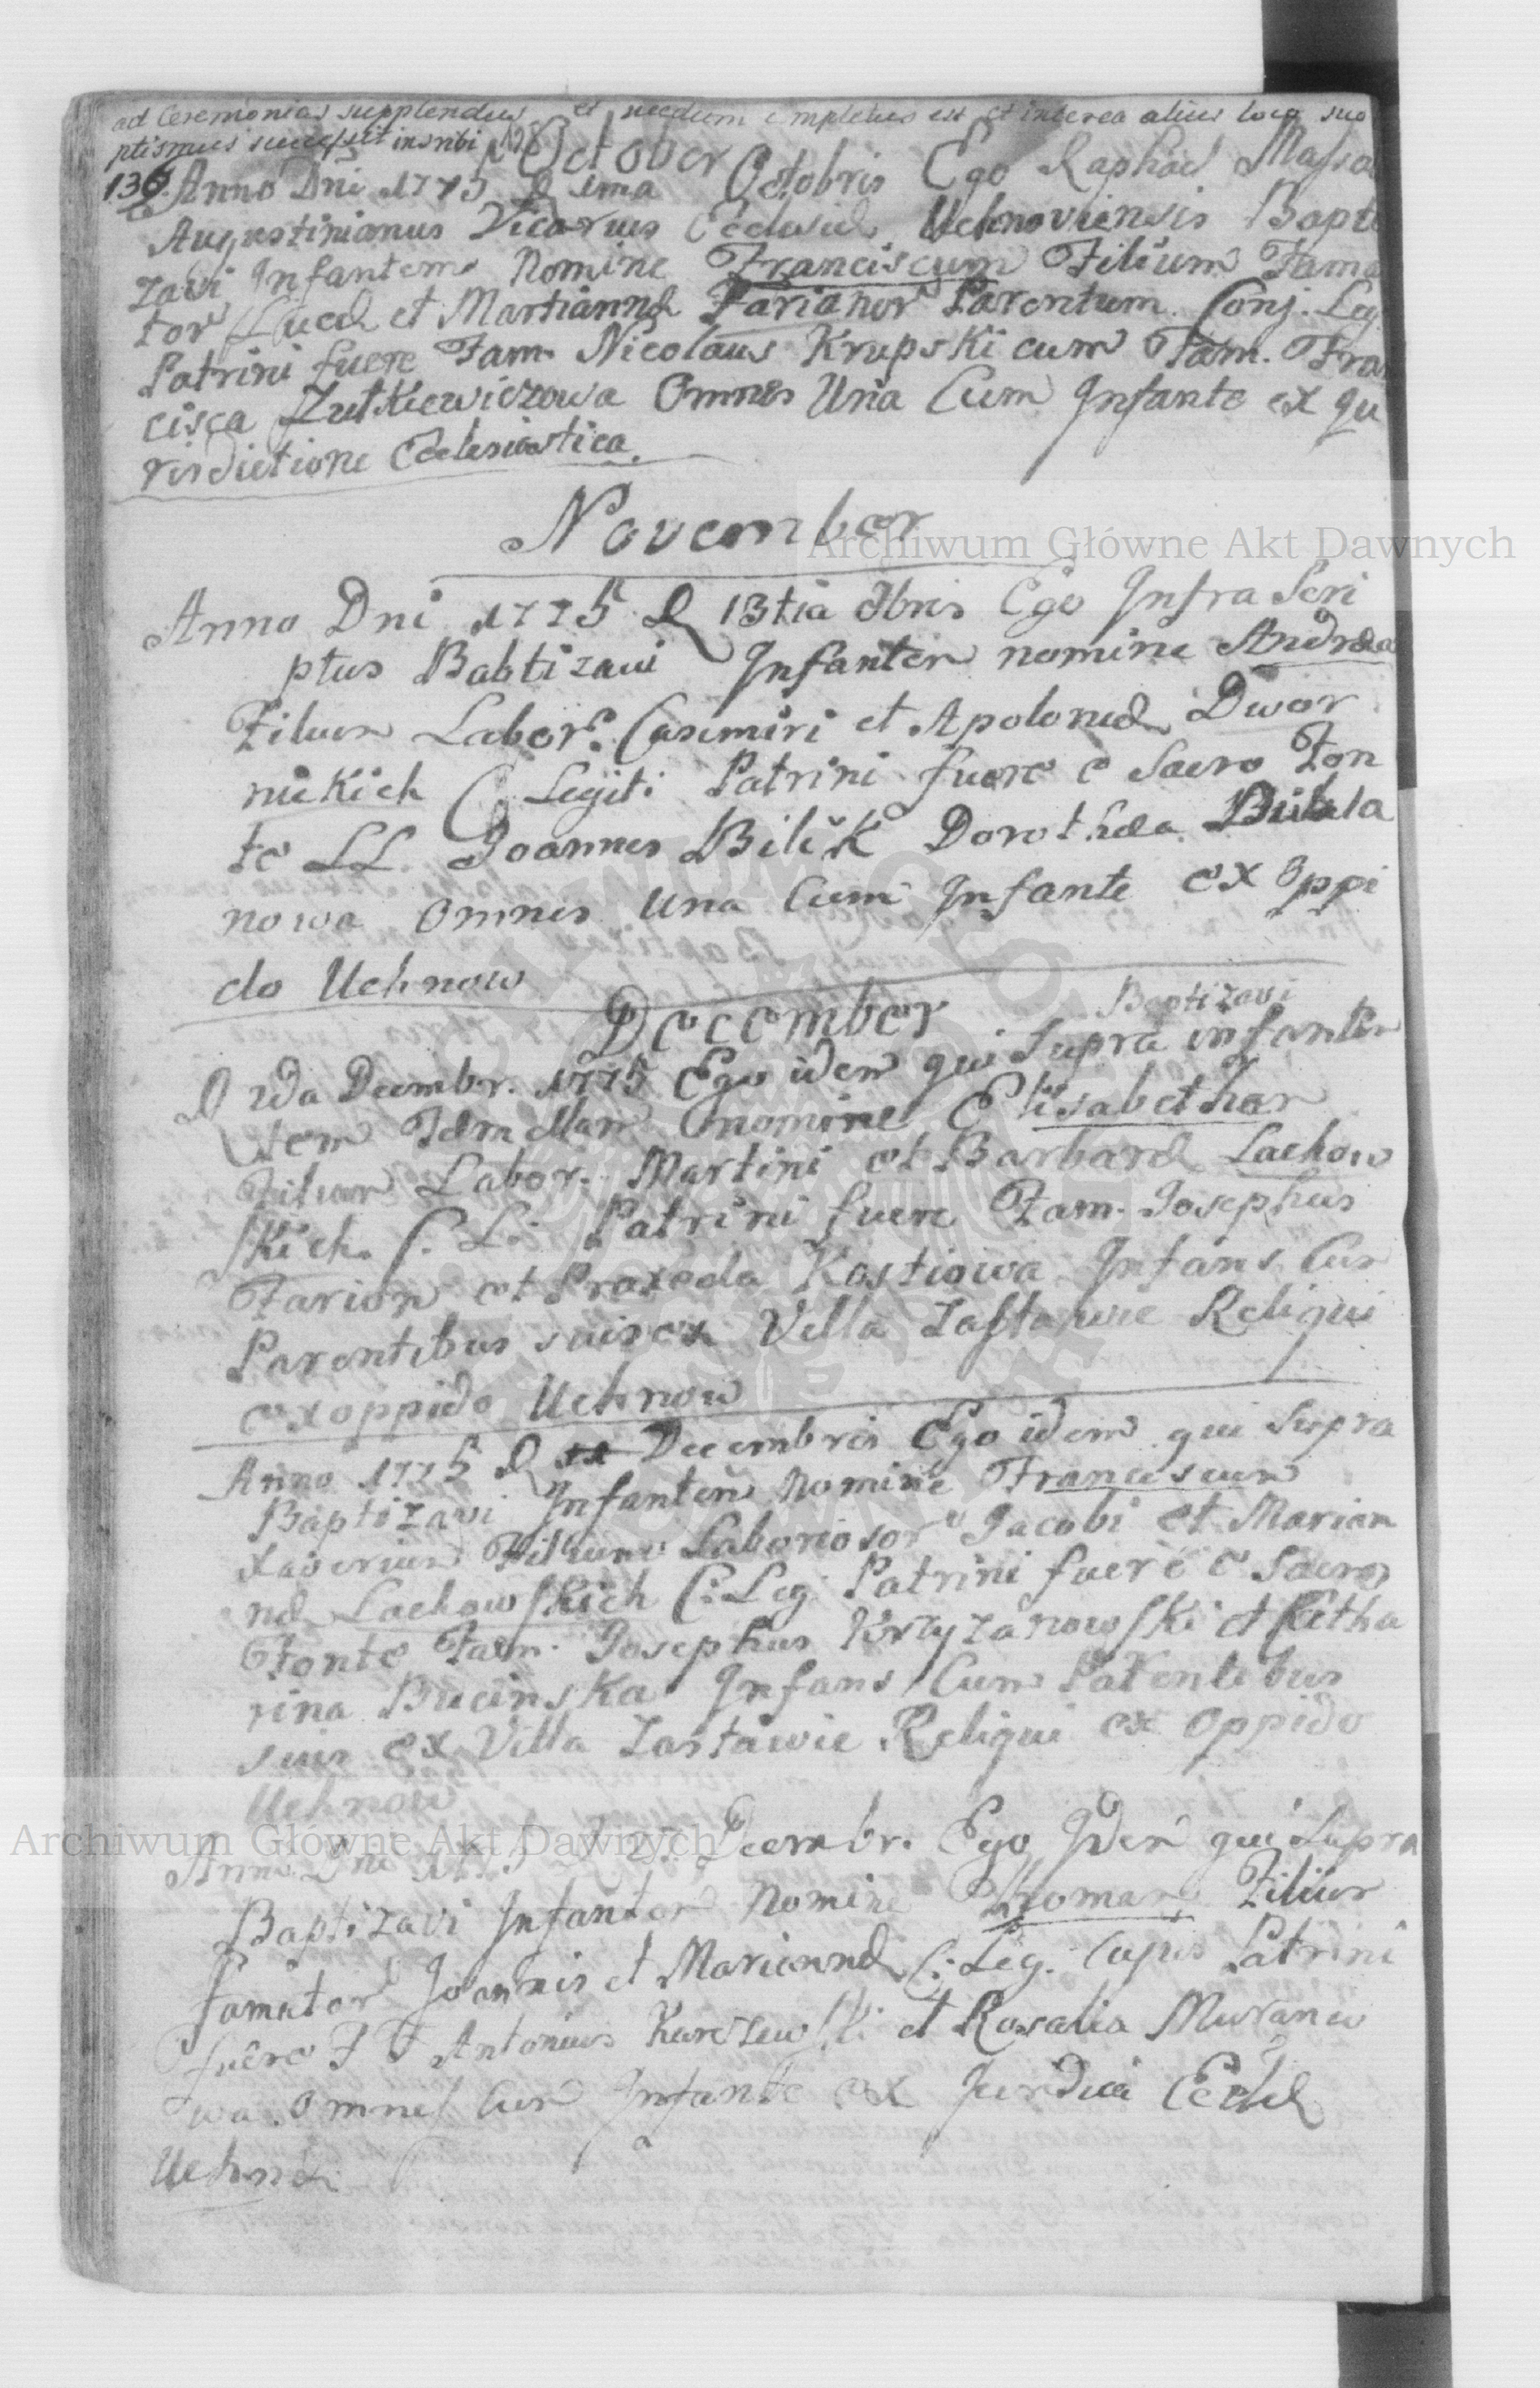 ad Ceremonias supplendus et necdum completus est et interea alius loco suo
ptismus successit inscribi
October
136. Anno Dni 1775 D 1ma Octobris Ego Raphael Massa
Augustinianus Vicarius Ecclesiæ Uchnoviensis Bapti
zavi Infantem Nomine Franciscum Filium Fama
tor Lucæ et Martiannæ Farianor Parentum Conj. Leg.
Patrini fuere Fam. Nicolaus Krupski cum Fam. Fran
cisca Zutkiewiczowa Omnes Una Cum Infante ex Ju
risdictione Ecclesiastica.
November
Anno Dni 1775 D 13tia 9bris Ego Infra Scri
ptus Babtizavi Infantem nomine Andrea
Filium Labor. Casimiri et Apoloniæ Dwor
nickich C Legiti. Patrini fuere e Sacro Fon
te LL. Joannes Bilik Dorothea
nowa omnes una Cum Infante ex oppi
do Uchnow
December
Baptizavi
D 2da Decembr. 1775 Ego idem qui Supra infantem
tem Femellam nomine Elisabetham
Filiam Labor. Martini et Barbaræ Lachow
skich C. L. Patrini fuere Fam. Josephus
Farion et Praxeda Kostiowa Infans Cum
Parentibus suis ex Villa Zastawie Reliqui
ex oppido Uchnow
Anno 1775 D Decembris Ego idem qui Supra
Baptizavi Infantem Nomine Franciscum
Xaverium Filium Laboriosor Jacobi et Marian
næ Lachowskich C: Leg: Patrini fuere e Sacro
Fonte Fam. Josephus Krzyzanowski et Catha
rina Bucinska Infans Cum Parentibus
suis ex Villa Zastawie Reliqui ex Oppido
Uchnow
Anno Dni 1775 D Decembr. Ego Idem qui Supra
Baptizavi Infantem Nomine Thomam Filium
Famator Joannis et Mariannæ C: Leg. Lupis Patrini
fuere F F Antonius et Rosalia Muranio
wa. Omnes Cum Infante ex Jurdica Eccliæ
Uchnov
Archiwum Główne Akt Dawnych
Archiwum Główne Akt Dawnych